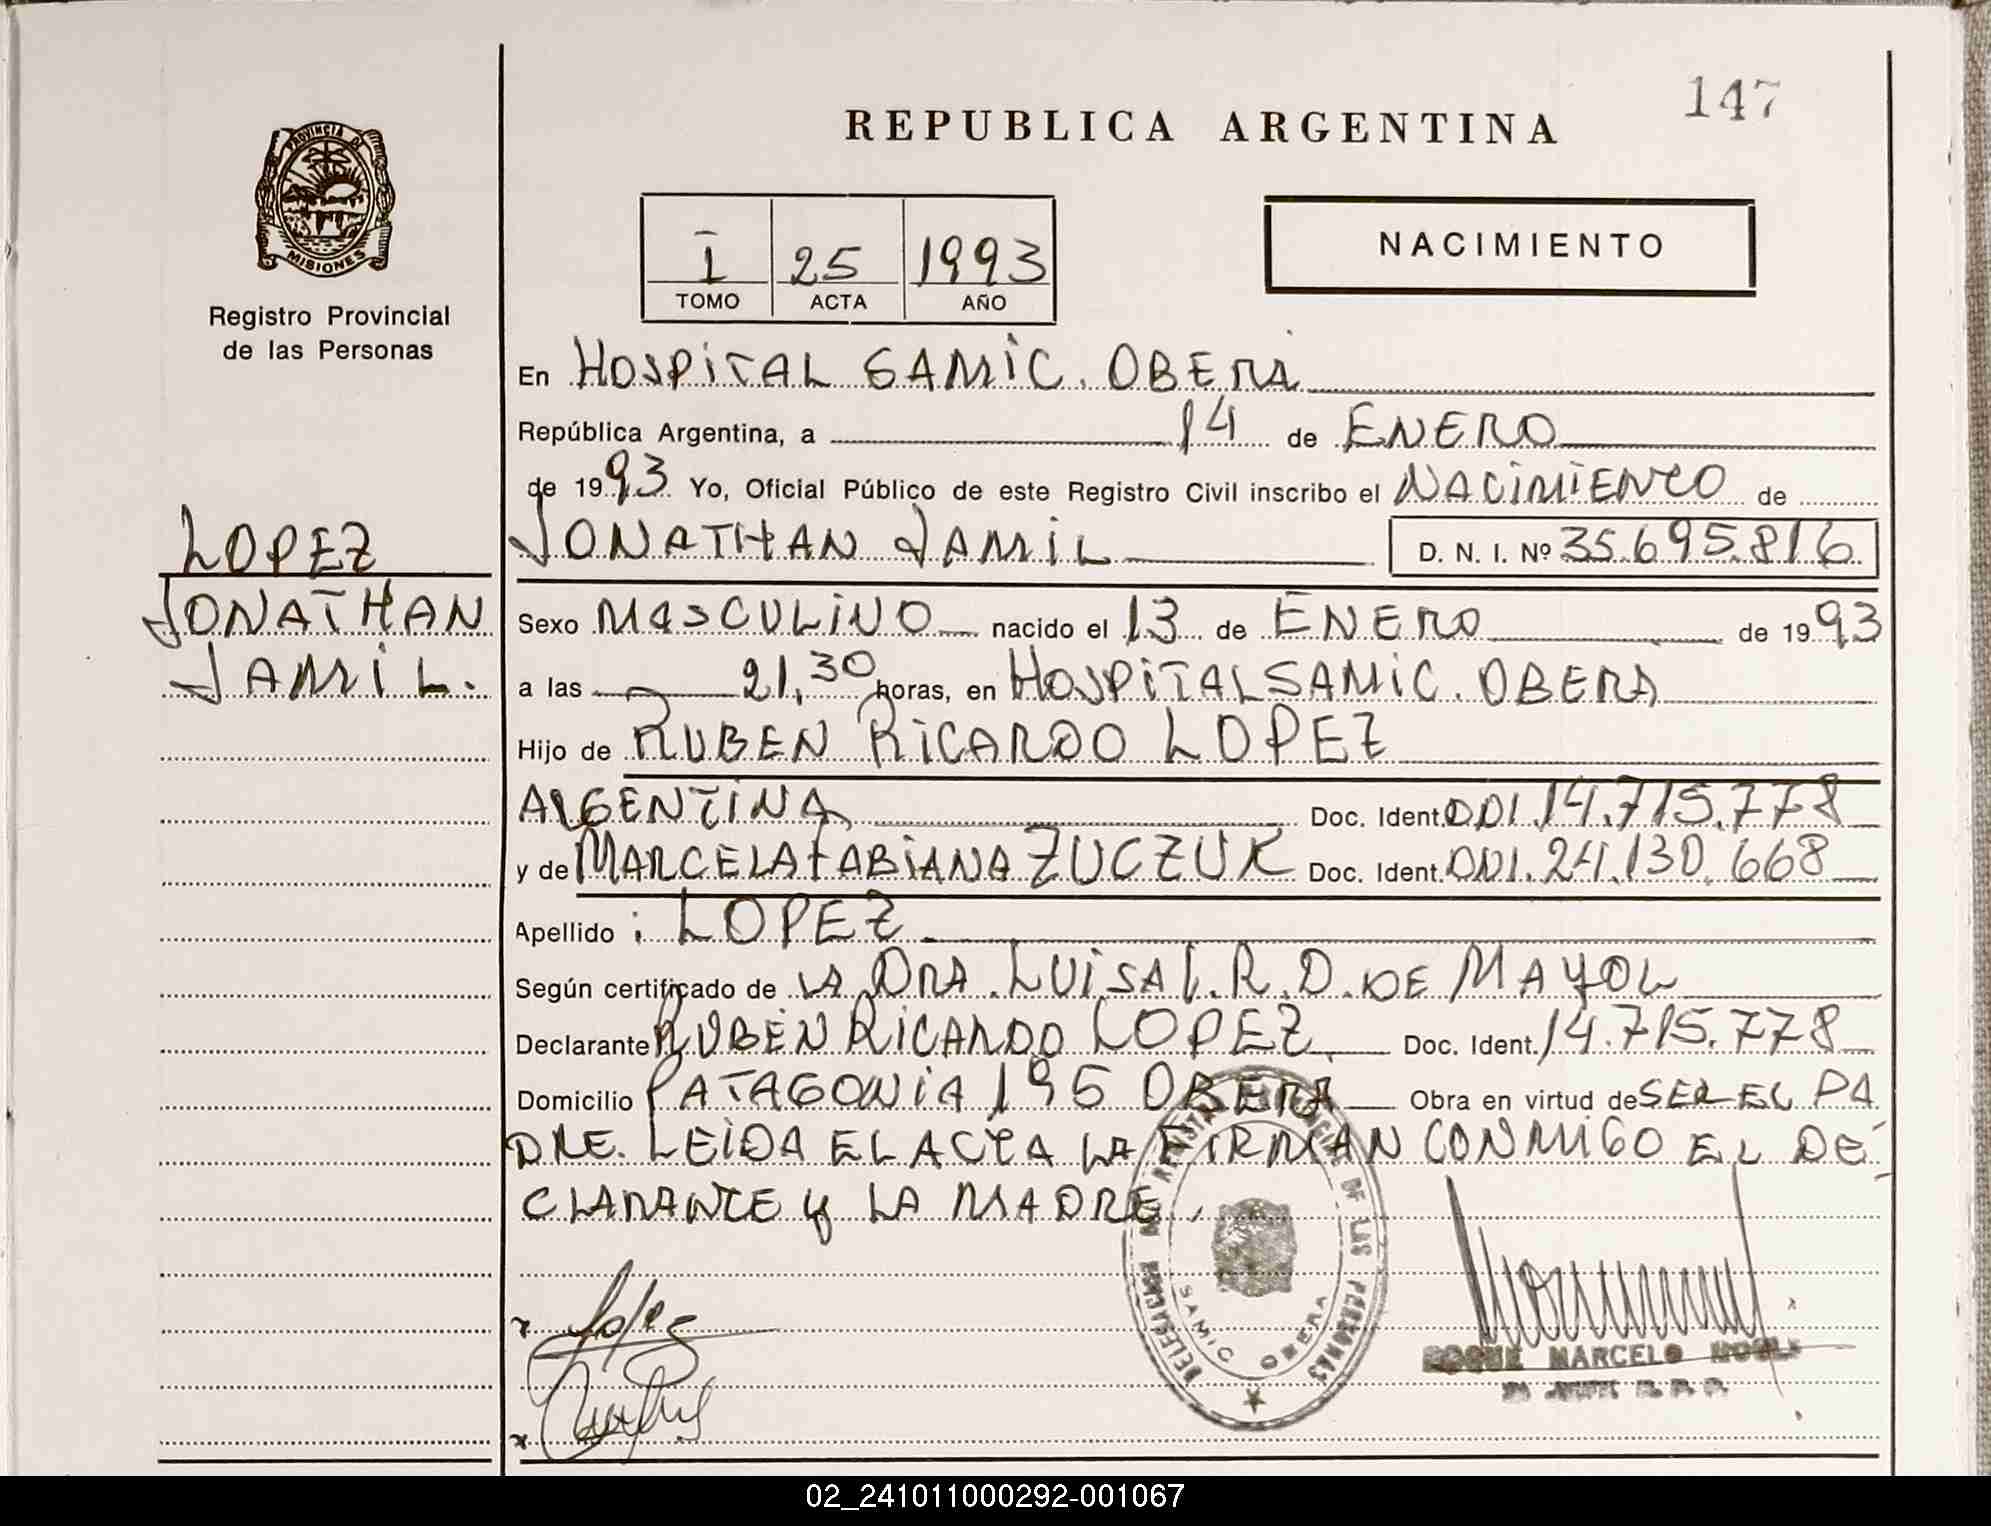 147
REPUBLICA ARGENTINA
PROVINCIA DE
MISIONES
Registro Provincial
de las Personas
I 25 1993
TOMO ACTA AÑO
NACIMIENTO
LOPEZ
JONATHAN
JAMIL.
En HOSPITAL SAMIC. OBERA
República Argentina, a 14 de ENERO
de 1993 Yo, Oficial Público de este Registro Civil inscribo el NACIMIENTO de
JONATHAN JAMIL D. N. I. Nº 35.695.816
Sexo MASCULINO nacido el 13 de ENERO de 1993
a las 21,30 horas, en HOSPITAL SAMIC. OBERA
Hijo de RUBEN RICARDO LOPEZ
ARGENTINA Doc. Ident. DDI. 14.715.778
y de MARCELA FABIANA ZUCZUK Doc. Ident. DDI. 24.130.668
Apellido : LOPEZ
Según certificado de LA DRA. LUISA I. R. D. DE MAYOL
Declarante RUBEN RICARDO LOPEZ Doc. Ident. 14.715.778
Domicilio PATAGONIA 195 OBERA Obra en virtud de SER EL PA
DRE. LEIDA EL ACTA LA FIRMAN CONMIGO EL DE
CLARANTE y LA MADRE.
x Lopez
x
DELEGACION DE LAS PERSONAS
SAMIC OBERA
ROQUE MARCELO
02_241011000292-001067